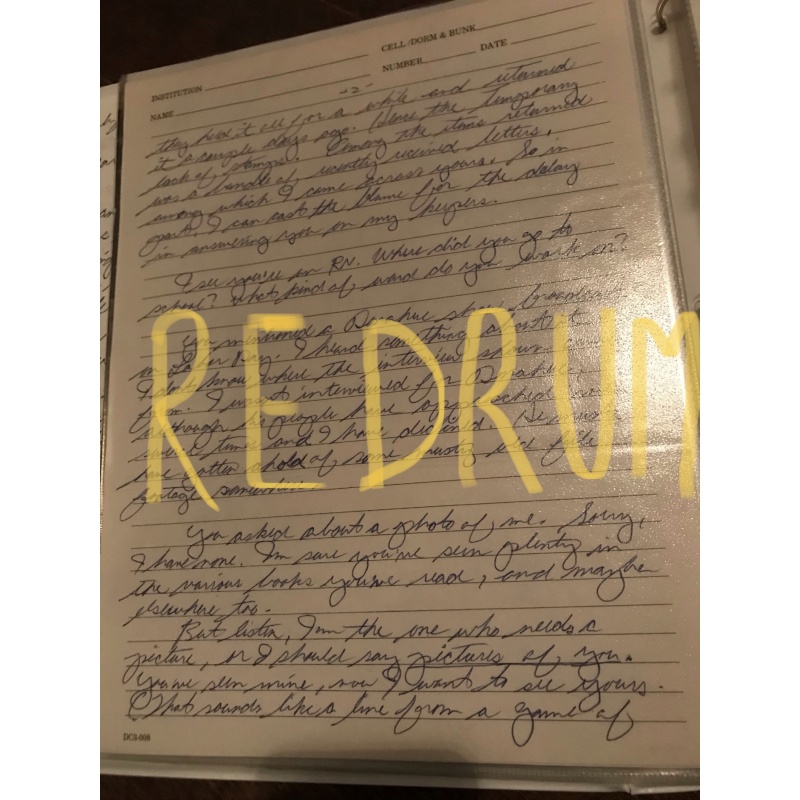 CELL/DORM & BUNK
INSTITUTION NUMBER DATE
NAME -2-
they had it all for a while and returned
it a couple days ago. Hence the temporary
lack of stamps. Among the items returned
was a bundle of recently received letters,
among which I came across yours. So in
part, I can cast the blame for the delay
in answering you on my keepers.
I see you're an RN. Where did you go to
school? What kind of ward do you work on?
You mentioned a Donahue show
on Labor Day. I heard something about it
I don't know where the interview shown
from. I wasn't interviewed for Donahue,
although his people have approached me
several times and I have declined. He must
have gotten ahold of some musty old file
footage somewhere.
REDRUM
You asked about a photo of me. Sorry,
I have none. I'm sure you've seen plenty in
the various books you've read, and maybe
elsewhere too.
But listen, I'm the one who needs a
picture, or I should say pictures of you.
You've seen mine, now I want to see yours.
(That sounds like a line from a game of
DC3-008